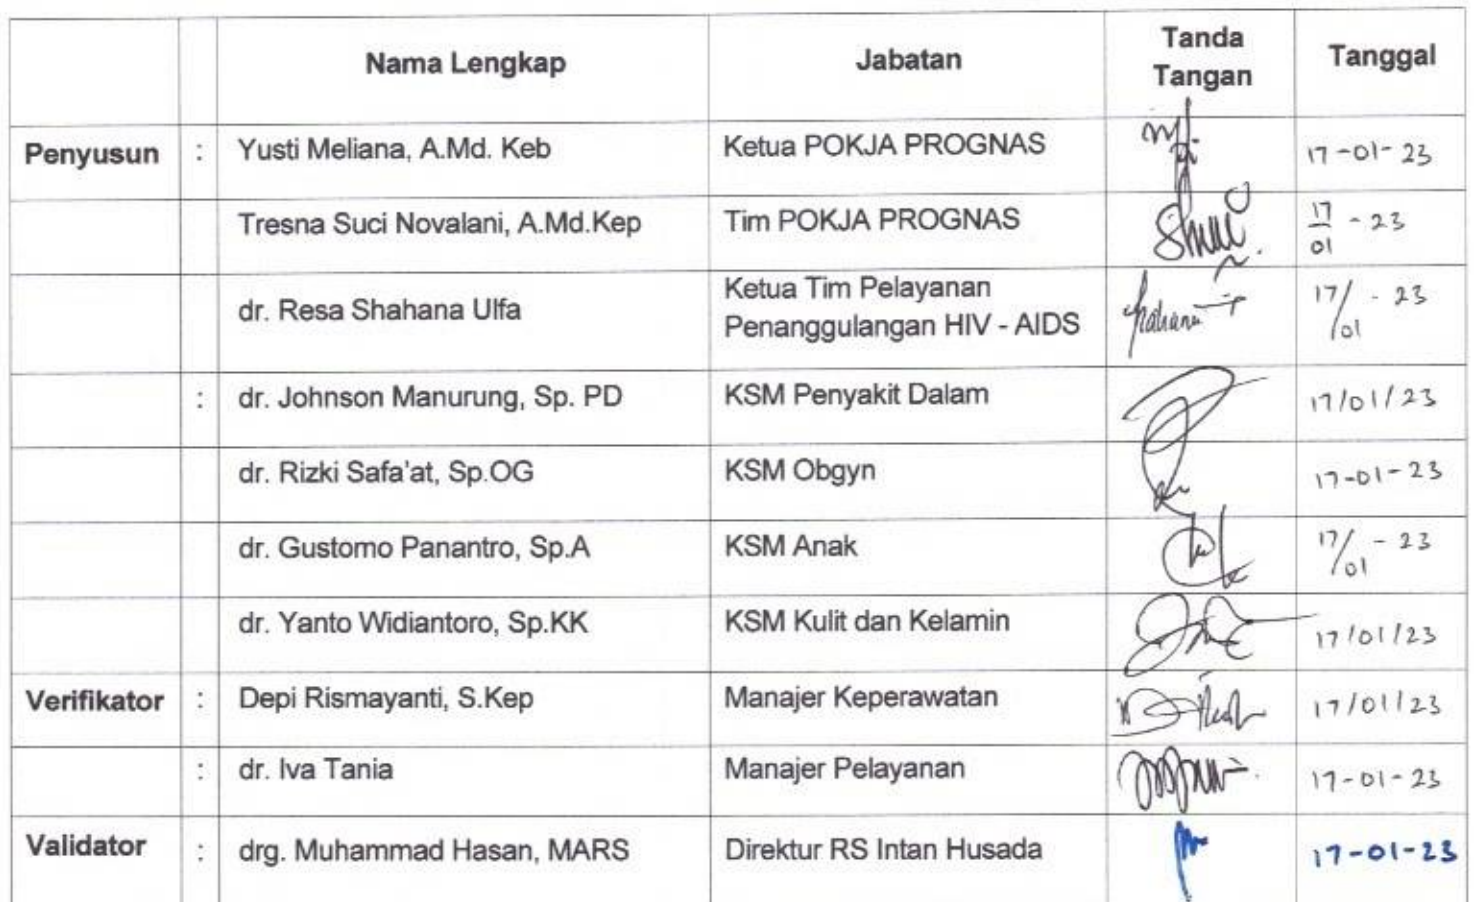 Nama Lengkap Jabatan Tanda Tangan Tanggal
Penyusun : Yusti Meliana, A.Md. Keb Ketua POKJA PROGNAS 17-01-23
Tresna Suci Novalani, A.Md.Kep Tim POKJA PROGNAS 17/01 - 23
dr. Resa Shahana Ulfa Ketua Tim Pelayanan Penanggulangan HIV - AIDS 17/01 - 23
: dr. Johnson Manurung, Sp. PD KSM Penyakit Dalam 17/01/23
dr. Rizki Safa'at, Sp.OG KSM Obgyn 17-01-23
dr. Gustomo Panantro, Sp.A KSM Anak 17/01 - 23
dr. Yanto Widiantoro, Sp.KK KSM Kulit dan Kelamin 17/01/23
Verifikator : Depi Rismayanti, S.Kep Manajer Keperawatan 17/01/23
: dr. Iva Tania Manajer Pelayanan 17-01-23
Validator : drg. Muhammad Hasan, MARS Direktur RS Intan Husada 17-01-23